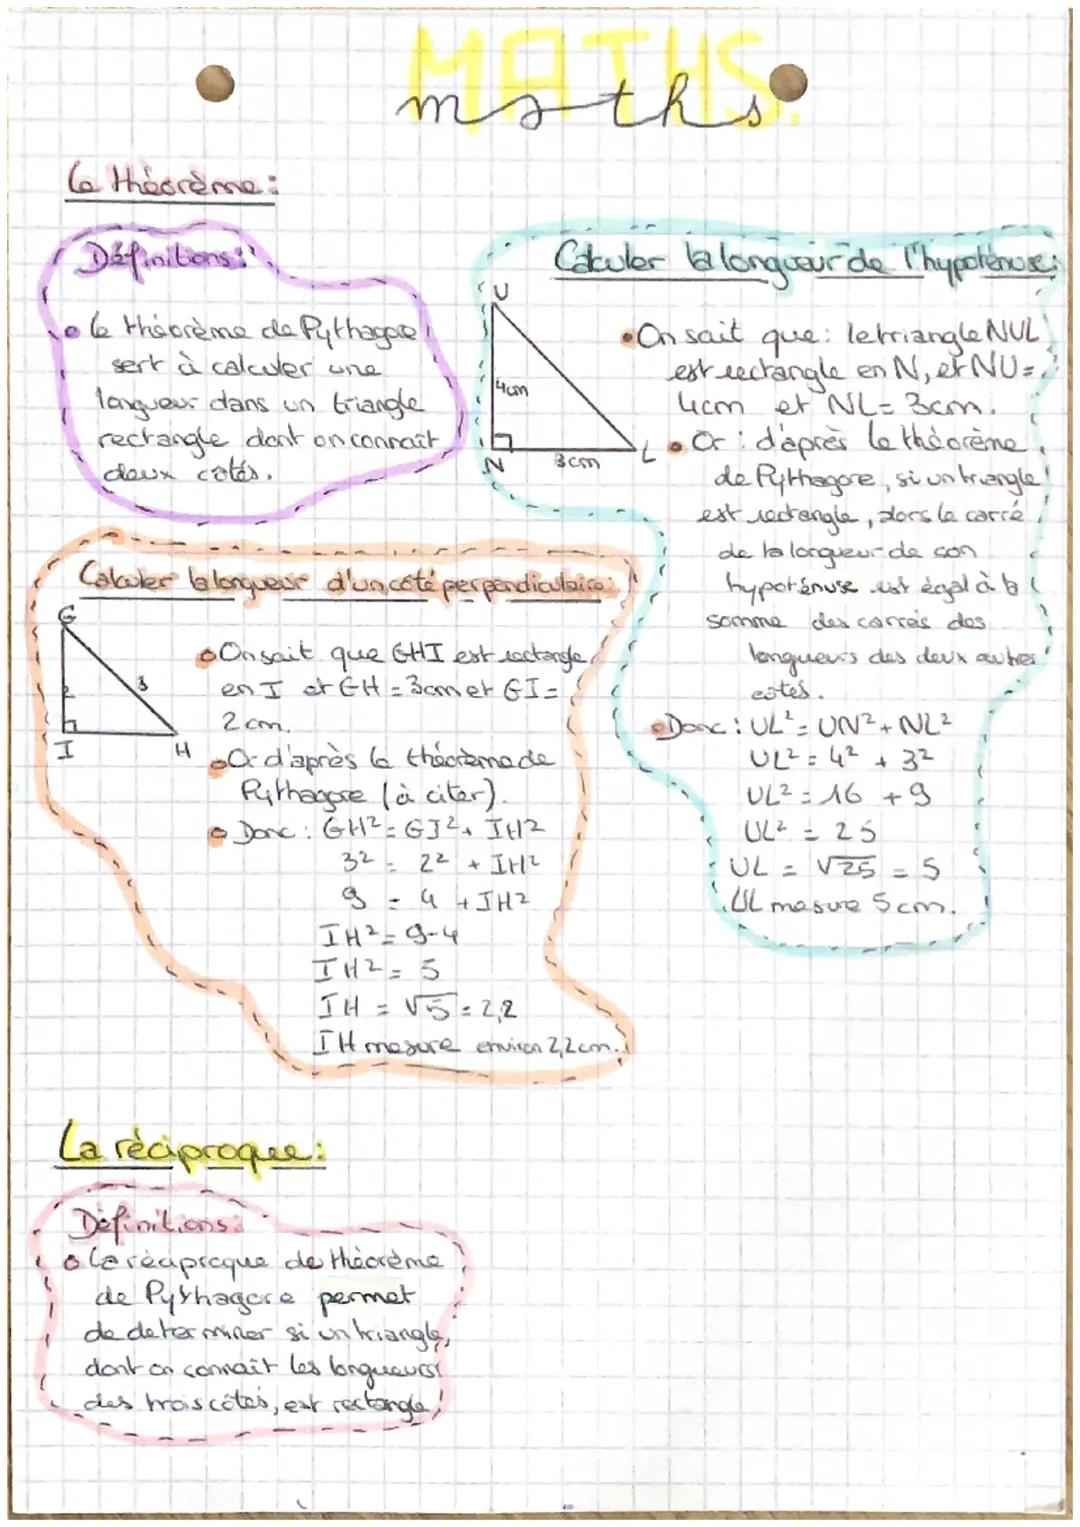 MATHS.
maths
Le théorème:
Définitions:
• le théorème de Pythagore
sert à calculer une
longueur dans un triangle
rectangle dont on connaît
deux cotés.
Calculer la longueur de l'hypoténuse:
U
4cm
N
3cm
L
• On sait que: le triangle NUL
est rectangle en N, et NU=
4cm et NL= 3cm.
• Or : d'après le théorème
de Pythagore, si un triangle
est rectangle, alors le carré
de la longueur de son
hypoténuse est égal à la
somme des carrés des
longueurs des deux autres
cotés.
• Donc : UL² = UN² + NL²
UL² = 4² + 3²
UL² = 16 + 9
UL² = 25
UL = √25 = 5
UL mesure 5cm.
Calculer la longueur d'un coté perpendiculaire:
G
2
3
I
H
• On sait que GHI est rectangle
en I et GH = 3cm et GI=
2 cm.
• Or d'après le théorème de
Pythagore (à citer).
• Donc : GH² = GI² + IH²
3² = 2² + IH²
9 = 4 + IH²
IH² = 9-4
IH² = 5
IH = √5 = 2,2
IH mesure environ 2,2cm.
La réciproque:
Définitions:
• La réciproque de théorème
de Pythagore permet
de determiner si un triangle,
dont on connaît les longueurs
des trois côtés, est rectangle